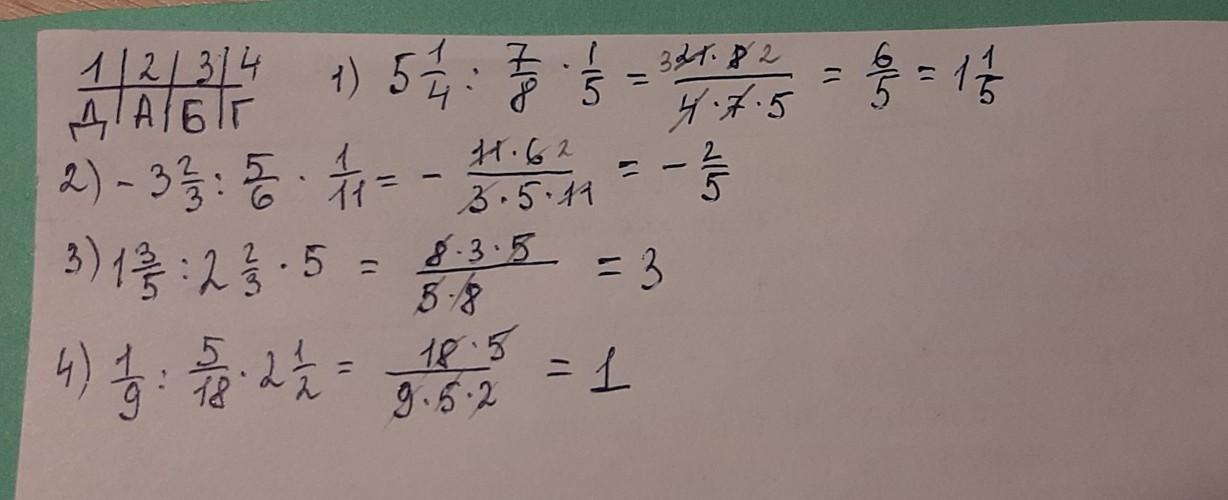 1 | 2 | 3 | 4
Д | А | Б | Г
1) 5 1/4 : 7/8 · 1/5 = 3 21 · 8 2 / 4 · 7 · 5 = 6/5 = 1 1/5
2) - 3 2/3 : 5/6 · 1/11 = - 11 · 6 2 / 3 · 5 · 11 = - 2/5
3) 1 3/5 : 2 2/3 · 5 = 8 · 3 · 5 / 5 · 8 = 3
4) 1/9 : 5/18 · 2 1/2 = 18 · 5 / 9 · 5 · 2 = 1